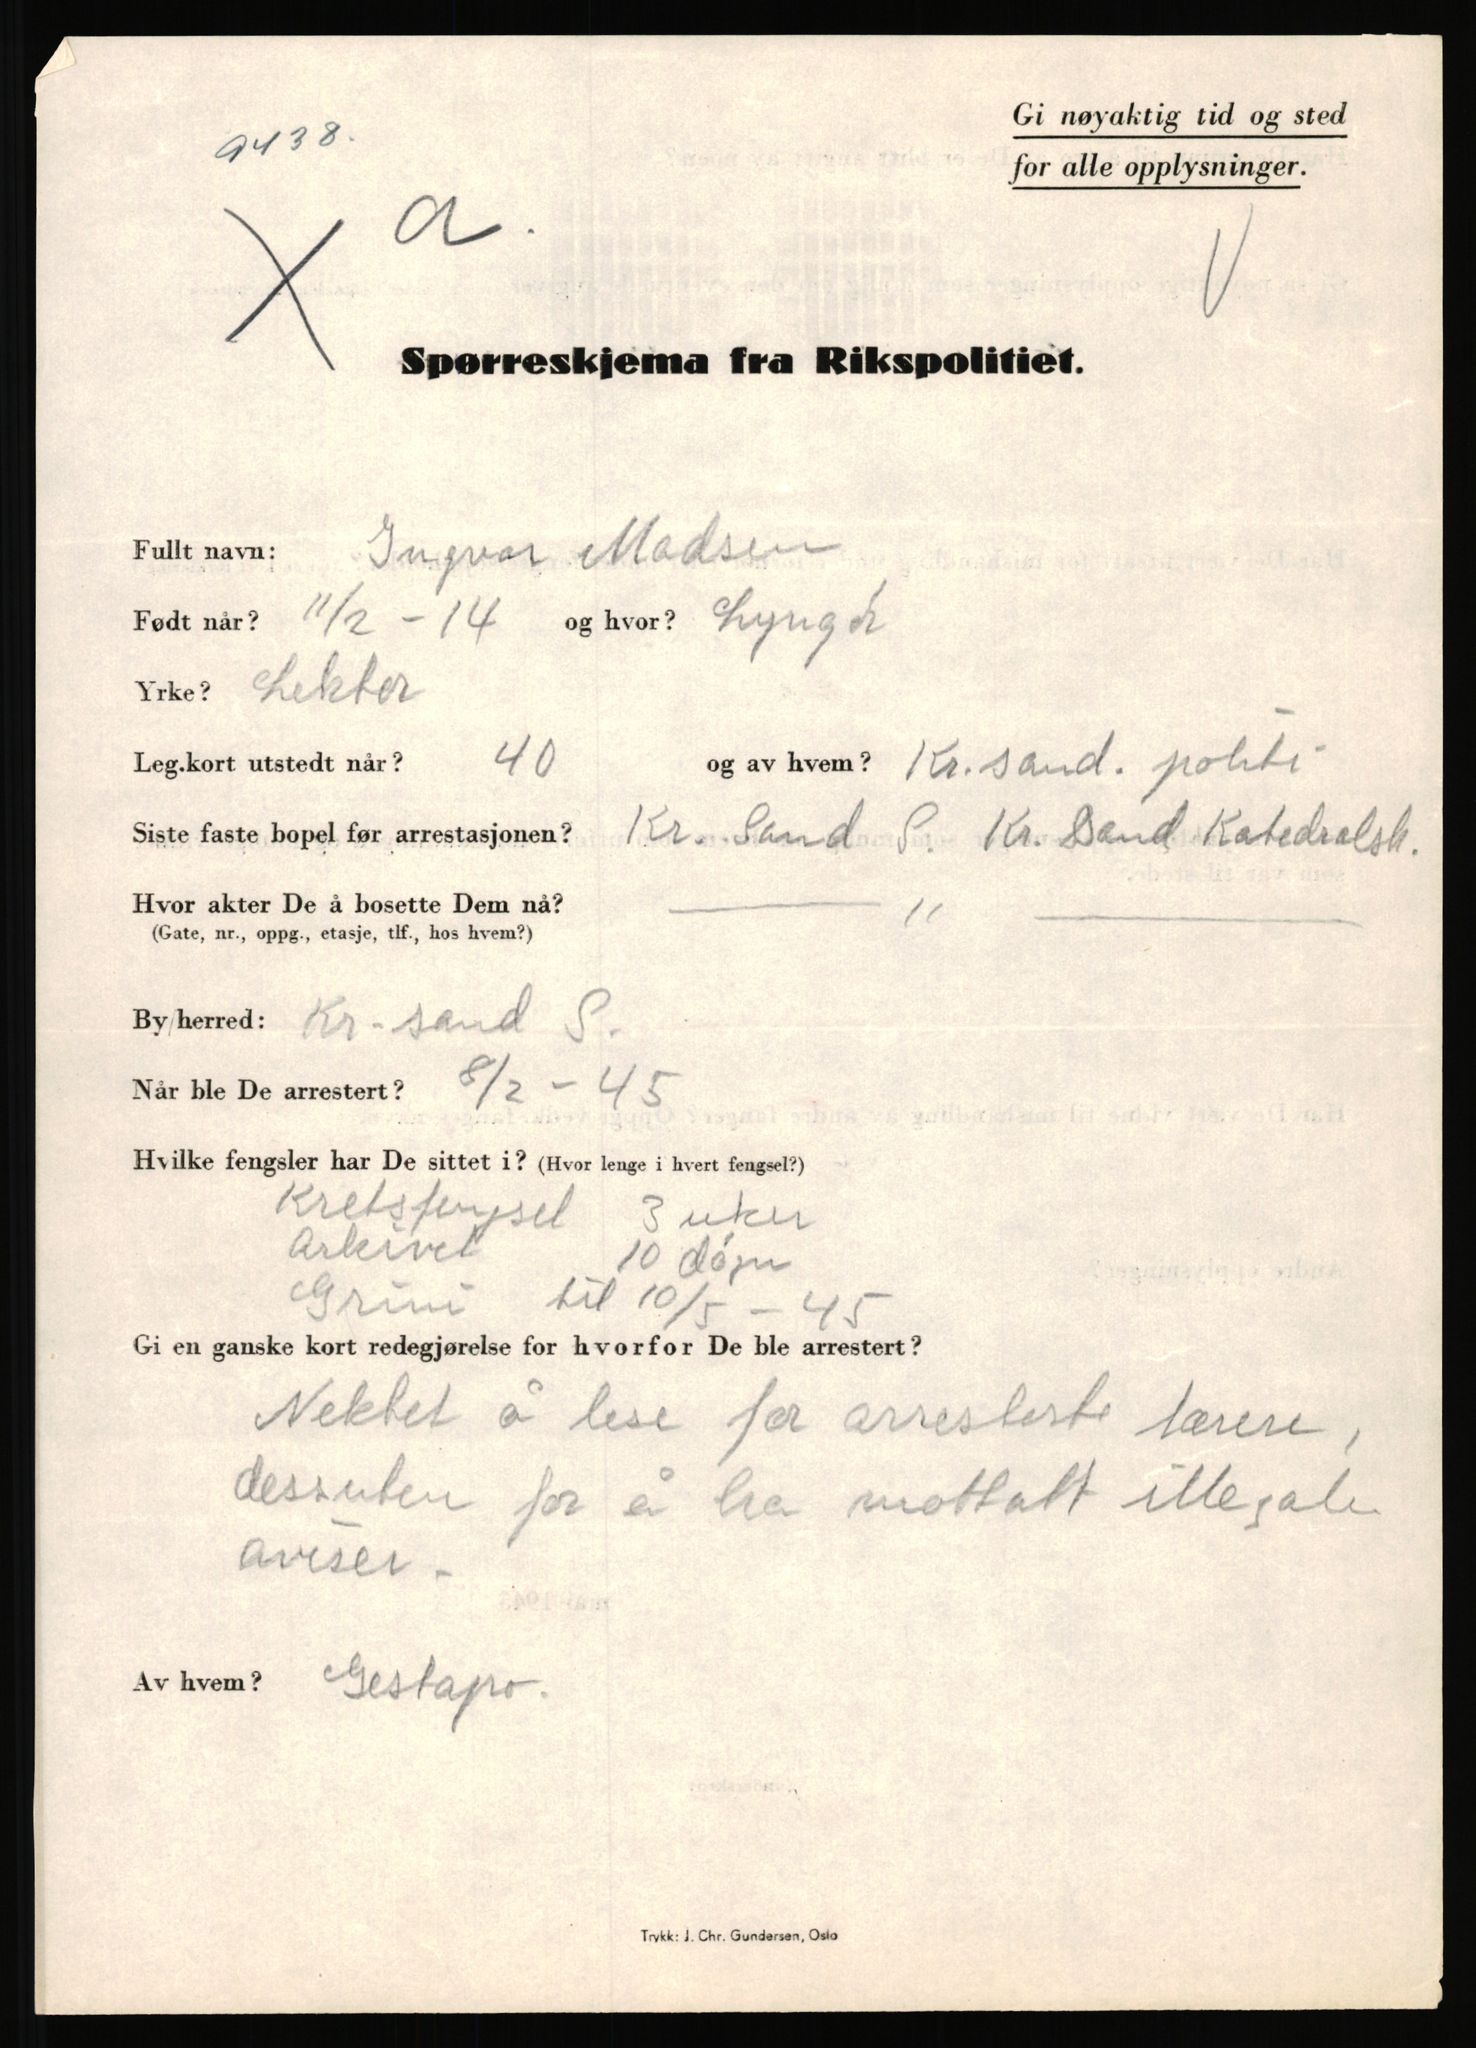 Gi nøyaktig tid og sted
for alle opplysninger.
9438.
X a. V
Spørreskjema fra Rikspolitiet.
Fullt navn: Ingvar Madsen
Født når? 11/2 - 14 og hvor? Lyngør
Yrke? Lektor
Leg.kort utstedt når? 40 og av hvem? Kr.sand. politi
Siste faste bopel før arrestasjonen? Kr. Sand S. Kr. Sand Katedralsk.
Hvor akter De å bosette Dem nå? — " —
(Gate, nr., oppg., etasje, tlf., hos hvem?)
By/herred: Kr.-sand S.
Når ble De arrestert? 8/2 - 45
Hvilke fengsler har De sittet i? (Hvor lenge i hvert fengsel?)
Kretsfengsel 3 uker
Arkivet 10 døgn
Grini til 10/5 - 45
Gi en ganske kort redegjørelse for hvorfor De ble arrestert?
Nektet å lese for arresterte lærere,
dessuten for å ha mottatt illegale
aviser.
Av hvem? Gestapo.
Trykk: J. Chr. Gundersen, Oslo